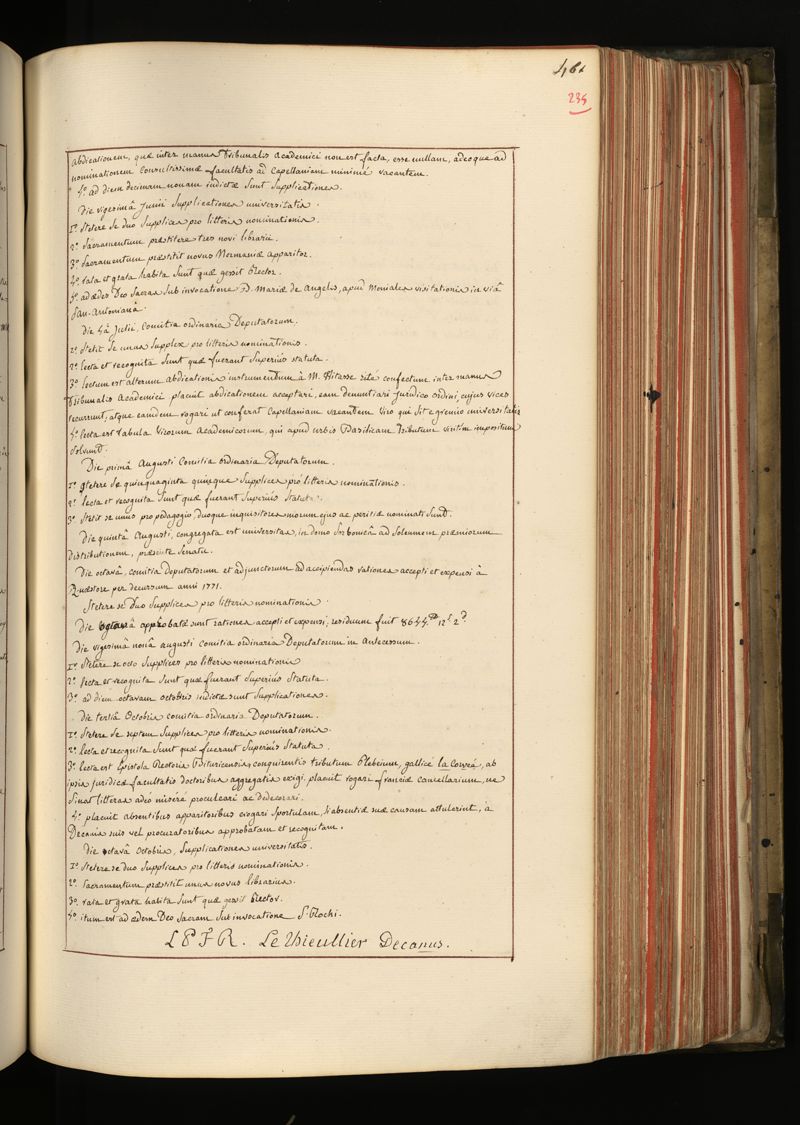 461
235
abdicationem, quæ inter manus Tribunalis Academici non est facta, esse nullam, adeoque ad
nominationem Consultissimæ facultatis ad Capellaniam minimè vacantem.
4º. ad diem decimam nonam indictæ sunt Supplicationes.
Die vigesimâ Junii Supplicationes universitatis.
1º. Stetere se duo Supplices pro litteris nominationis.
2º. Sacramentum præstitere tres novi librarii.
3º. Sacramentum præstitit novus Normaniæ apparitor.
4º. rata et grata habita sunt quæ gessit Rector.
5º. ad ædes Deo Sacras sub invocatione B. Mariæ de Angelis, apud Moniales visitationis in viâ
San-Antonianâ.
Die 4â Julii, Comitia ordinaria Deputatorum.
1º. Stetit se unus Supplex pro litteris nominationis.
2º. lecta et recognita sunt quæ fuerant Superiùs statuta.
3º. lectum est alterum abdicationis instrumentum à M. Hitasse ritè confectum inter manus
Tribunalis Academici placuit abdicationem acceptari, eam denuntiari juridico ordini, cujus vices
recurrunt, atque eundem rogari ut conferat Capellaniam vacantem viro qui sit è gremio universitatis
4º. lecta est tabula virorum Academicorum, qui apud urbis Basilicam tributum viritim impositum
solvunt.
Die primâ Augusti Comitia ordinaria Deputatorum.
1º. Stetere se quinquaginta quinque Supplices pro litteris nominationis.
2º. lecta et recognita sunt quæ fuerant Superiùs Statuta.
3º. Stetit se unus pro pedagogio, duoque inquisitores morum ejus ac peritiæ nominati sunt.
Die quintâ Augusti, congregata est universitas, in domo Sorbonicâ ad Solemnem præmiorum
distributionem, præsente Senatu.
Die octavâ, comitia Deputatorum et adjunctorum ad accipiendas rationes accepti et expensi à
Quæstore per decursum anni 1771.
Stetere se duo Supplices pro litteris nominationis.
Die octavâ approbatæ sunt rationes accepti et expensi, residuum fuit 8644.tt 12s 2d.
Die vigesimâ nonâ augusti comitia ordinaria Deputatorum in Antecessum.
1º. Stetere se octo Supplices pro litteris nominationis
2º. lecta et recognita sunt quæ fuerant Superiùs Statuta.
3º. ad diem octavam octobris indictæ sunt Supplicationes.
Die tertiâ Octobris comitia ordinaria Deputatorum.
1º. Stetere se septem Supplices pro litteris nominationis.
2º. lecta et recognita sunt quæ fuerant Superiùs Statuta.
3º. lecta est Epistola Rectoris Bituricensis, conquirentis tributum Plebeium, gallicè la Corvéa, ab
ipsis juridicæ facultatis doctoribus aggregatis exigi. placuit rogari franciæ cancellarium, ne
sinat litteras adeò miserè proculcari ac dedecorari.
4º. placuit absentibus apparitoribus erogari sportulam, si absentiæ suæ causam attulerint, à
Decanis suis vel procuratoribus approbatam et recognitam.
Die octavâ Octobris, Supplicationes universitatis.
1º. Stetere se duo Supplices pro litteris nominationis.
2º. Sacramentum præstitit unus novus librarius.
3º. rata et grata habita sunt quæ gessit Rector.
4º. itum est ad ædem Deo Sacram sub invocatione Sti Rochi.
L P F R. Le Thieullier Decanus.